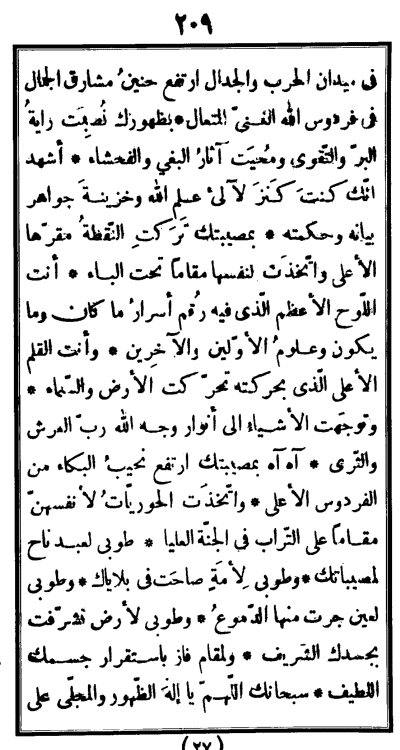 ٢٠٩
فى ميدان الحرب والجدال ارتفع حنينُ مشارق الجمال
فى فردوس الله الغنىّ المتعال * بظهورك نُصِبَت رايةُ
البرّ والتقوى ومُحِيَت آثارُ البغي والفحشاء * أشهد
انّك كنتَ كَنزَ لآلئ علم الله وخزينةَ جواهر
بيانه وحكمته * بمصيبتك تَرَكَتِ النّقطةُ مقرّها
الأعلى واتّخذت لنفسها مقاماً تحت الباء * أنت
اللّوح الأعظم الّذى فيه رُقم أسرارُ ما كان وما
يكون وعلومُ الأوّلين والآخرين * وأنت القلم
الأعلى الّذى بحركته تحرّكت الأرض والسّماء *
وتوجّهت الأشياء الى أنوار وجه الله ربّ العرش
والثّرى * آه آه بمصيبتك ارتفع نحيبُ البكاء من
الفردوس الأعلى * واتّخذَت الحوريّاتُ لأنفسهنّ
مقاماً على التّراب فى الجنّة العليا * طوبى لعبد ناح
لمصيباتك * وطوبى لِأَمَةٍ صاحَت فى بلاياك * وطوبى
لعين جرت منها الدّموعُ * وطوبى لأرض تشرّفت
بجسدك الشريف * ولمقام فاز باستقرار جسمك
اللطيف * سبحانك اللّهمّ يا إلهَ الظّهور والمجلّى على
(٢٧)